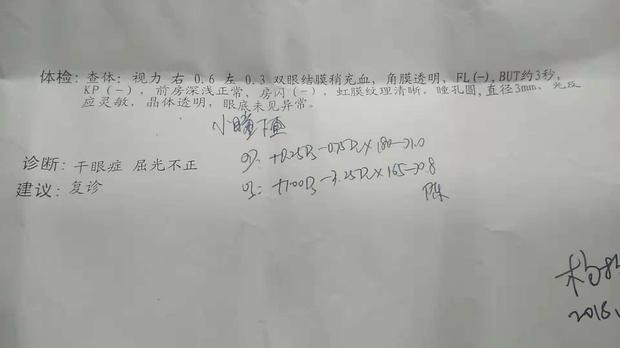 体检: 查体: 视力 右 0.6 左 0.3 双眼结膜稍充血, 角膜透明, FL(-), BUT约3秒,
KP(-), 前房深浅正常, 房闪(-), 虹膜纹理清晰, 瞳孔圆, 直径3mm, 光反
应灵敏, 晶体透明, 眼底未见异常。
小瞳下查
诊断: 干眼症 屈光不正
OD: +0.25DS-0.75DC×180→1.0
建议: 复诊
OS: +1.00DS-3.25DC×165→0.8